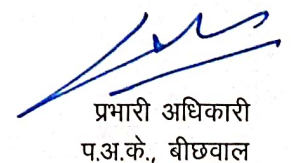 प्रभारी अधिकारी
प.अ.के., बीछवाल